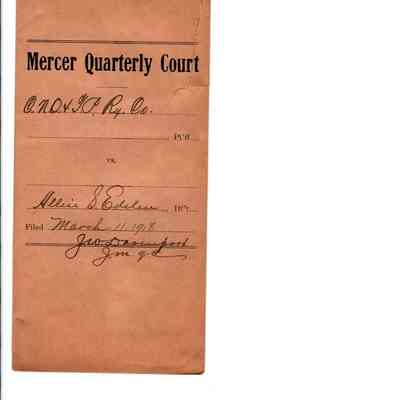 Mercer Quarterly Court
C.N.O & T.P. Ry. Co.
Pl'ff
vs.
Allie S. Edelen Df't
Filed March 11, 1918
Jno Davenport